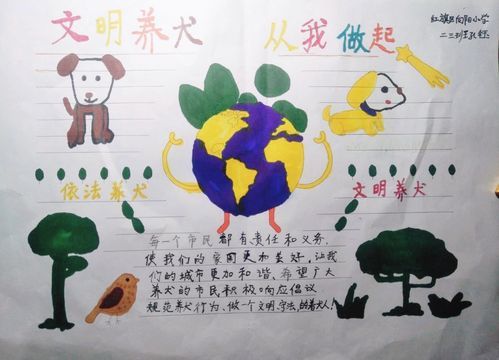 文明养犬 从我做起
红旗区向阳小学
二三班
依法养犬
文明养犬
每一个市民都有责任和义务,
使我们的家园更加美好,让我
们的城市更加和谐。希望广大
养犬的市民积极响应倡议
规范养犬行为、做一个文明、守法的养犬人!